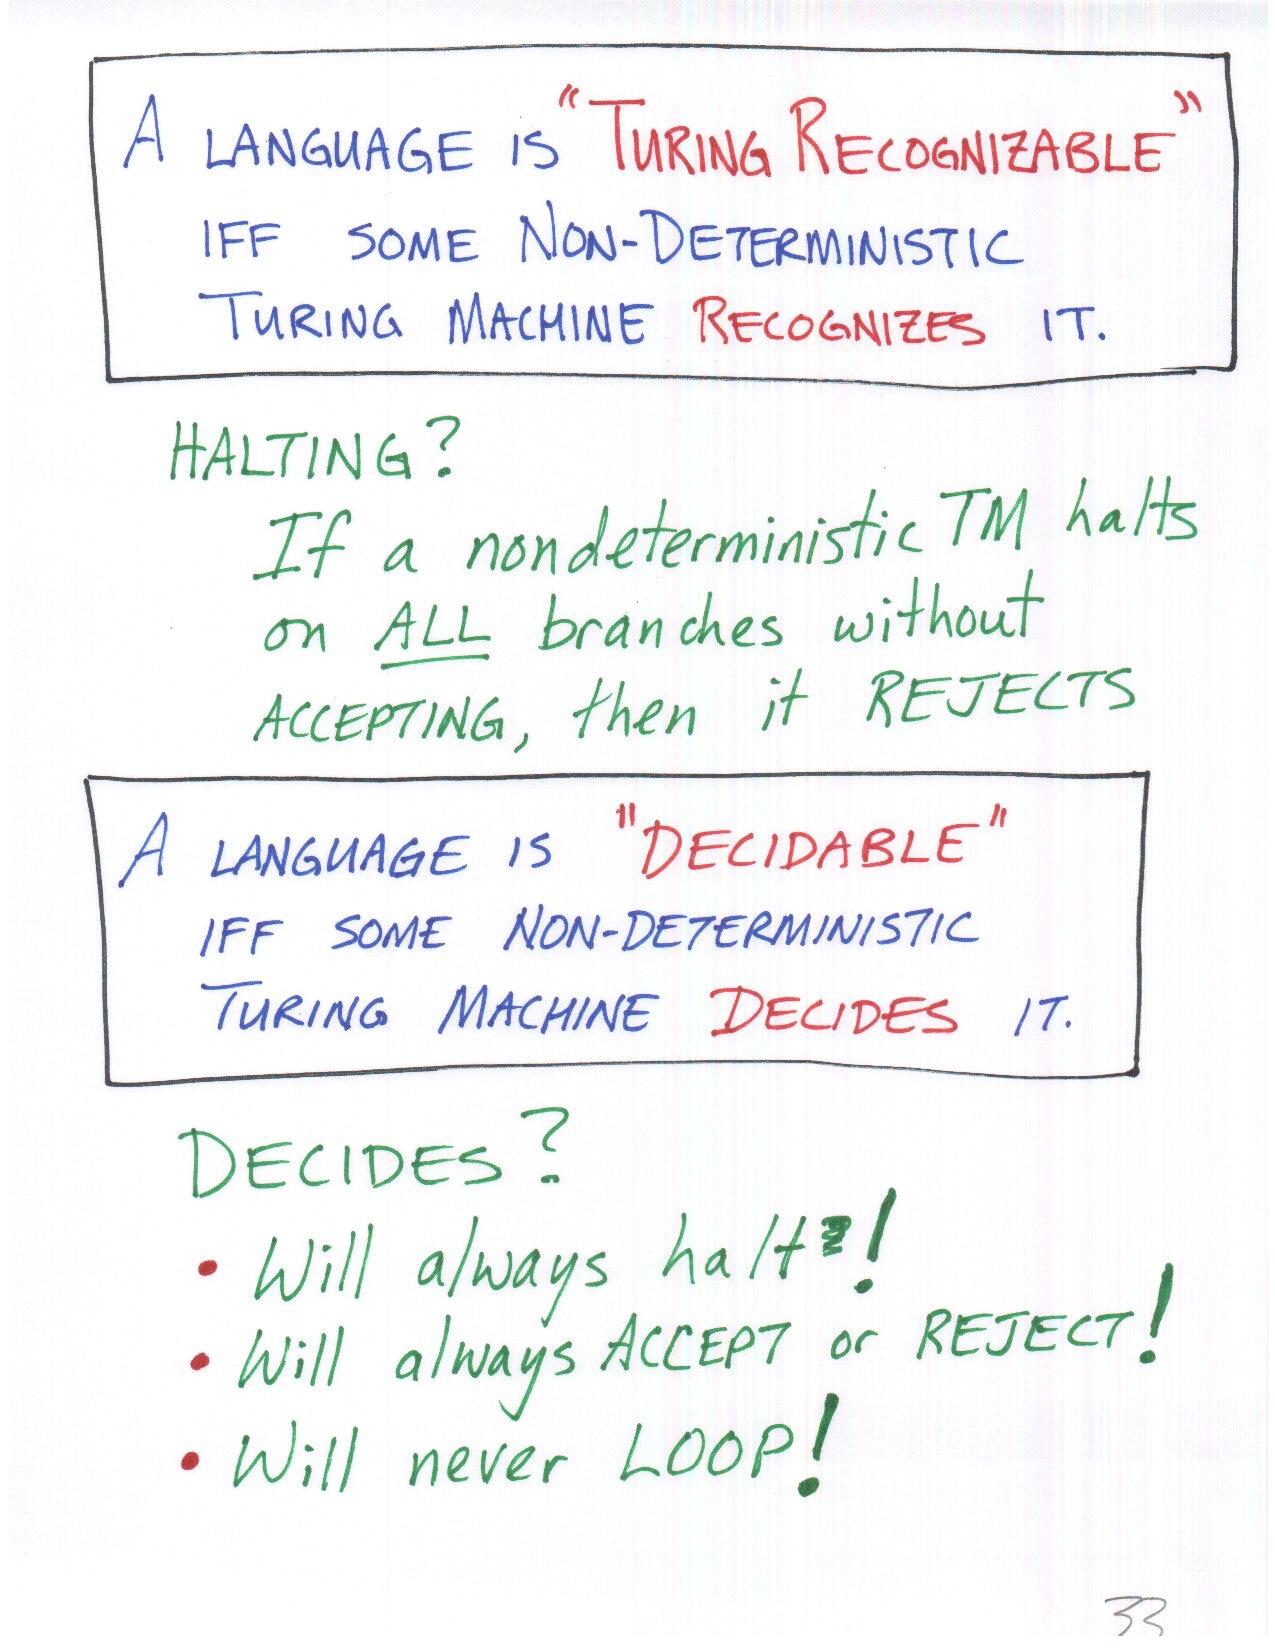 A LANGUAGE IS "TURING RECOGNIZABLE"
IFF SOME NON-DETERMINISTIC
TURING MACHINE RECOGNIZES IT.
HALTING?
If a nondeterministic TM halts
on ALL branches without
ACCEPTING, then it REJECTS
A LANGUAGE IS "DECIDABLE"
IFF SOME NON-DETERMINISTIC
TURING MACHINE DECIDES IT.
DECIDES?
• Will always halt!
• Will always ACCEPT or REJECT!
• Will never LOOP!
33